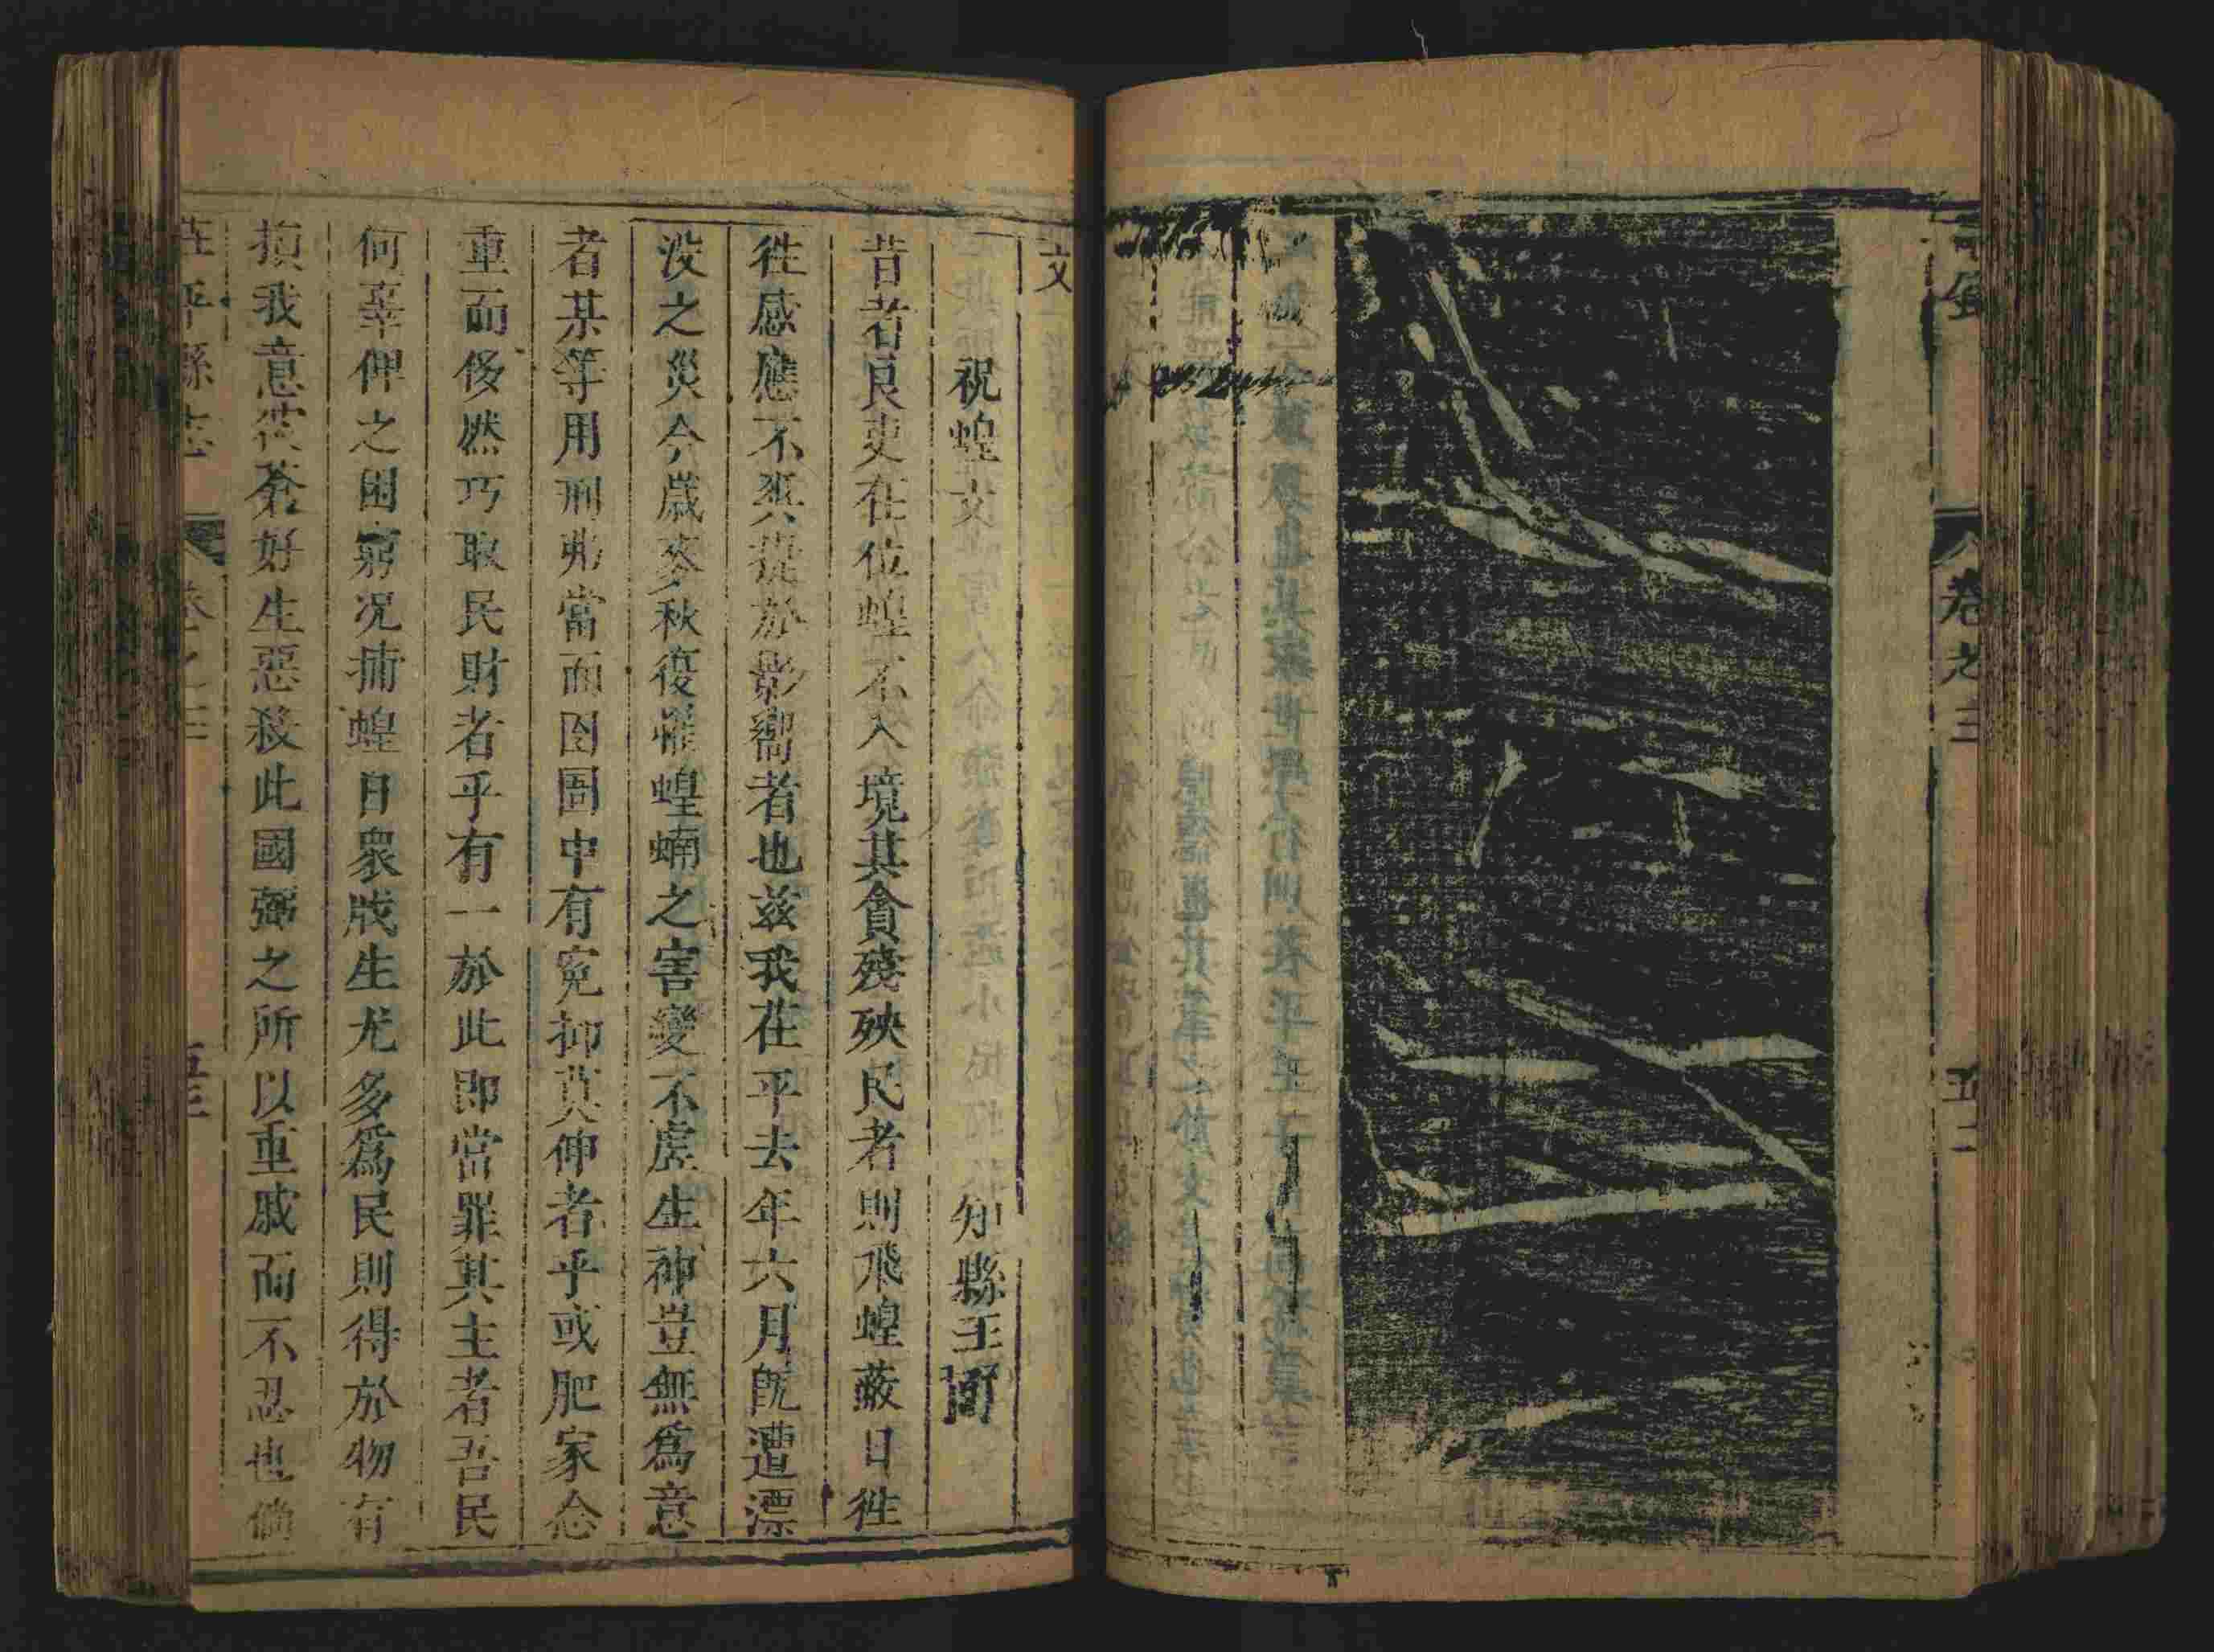 卷之三
五十二
文
祝蝗文 知縣王圻
昔者良吏在位蝗不入境其貪殘殃民者則飛蝗蔽日徃
徃感應不爽㨗於影嚮者也兹我茌平去年六月旣遭漂
没之災今歲麥秋復罹蝗蝻之害變不虗生神豈無爲意
者某等用刑弗當而囹圄中有寃抑莫伸者乎或肥家念
重而侈然巧取民財者乎有一於此即當罪其主者吾民
何辜俾之困窮况捕蝗日衆戕生尤多爲民則得於物有
損我意彼蒼好生惡殺此國彌之所以重戚而不忍也倘
茌平縣志 卷之三 五十三